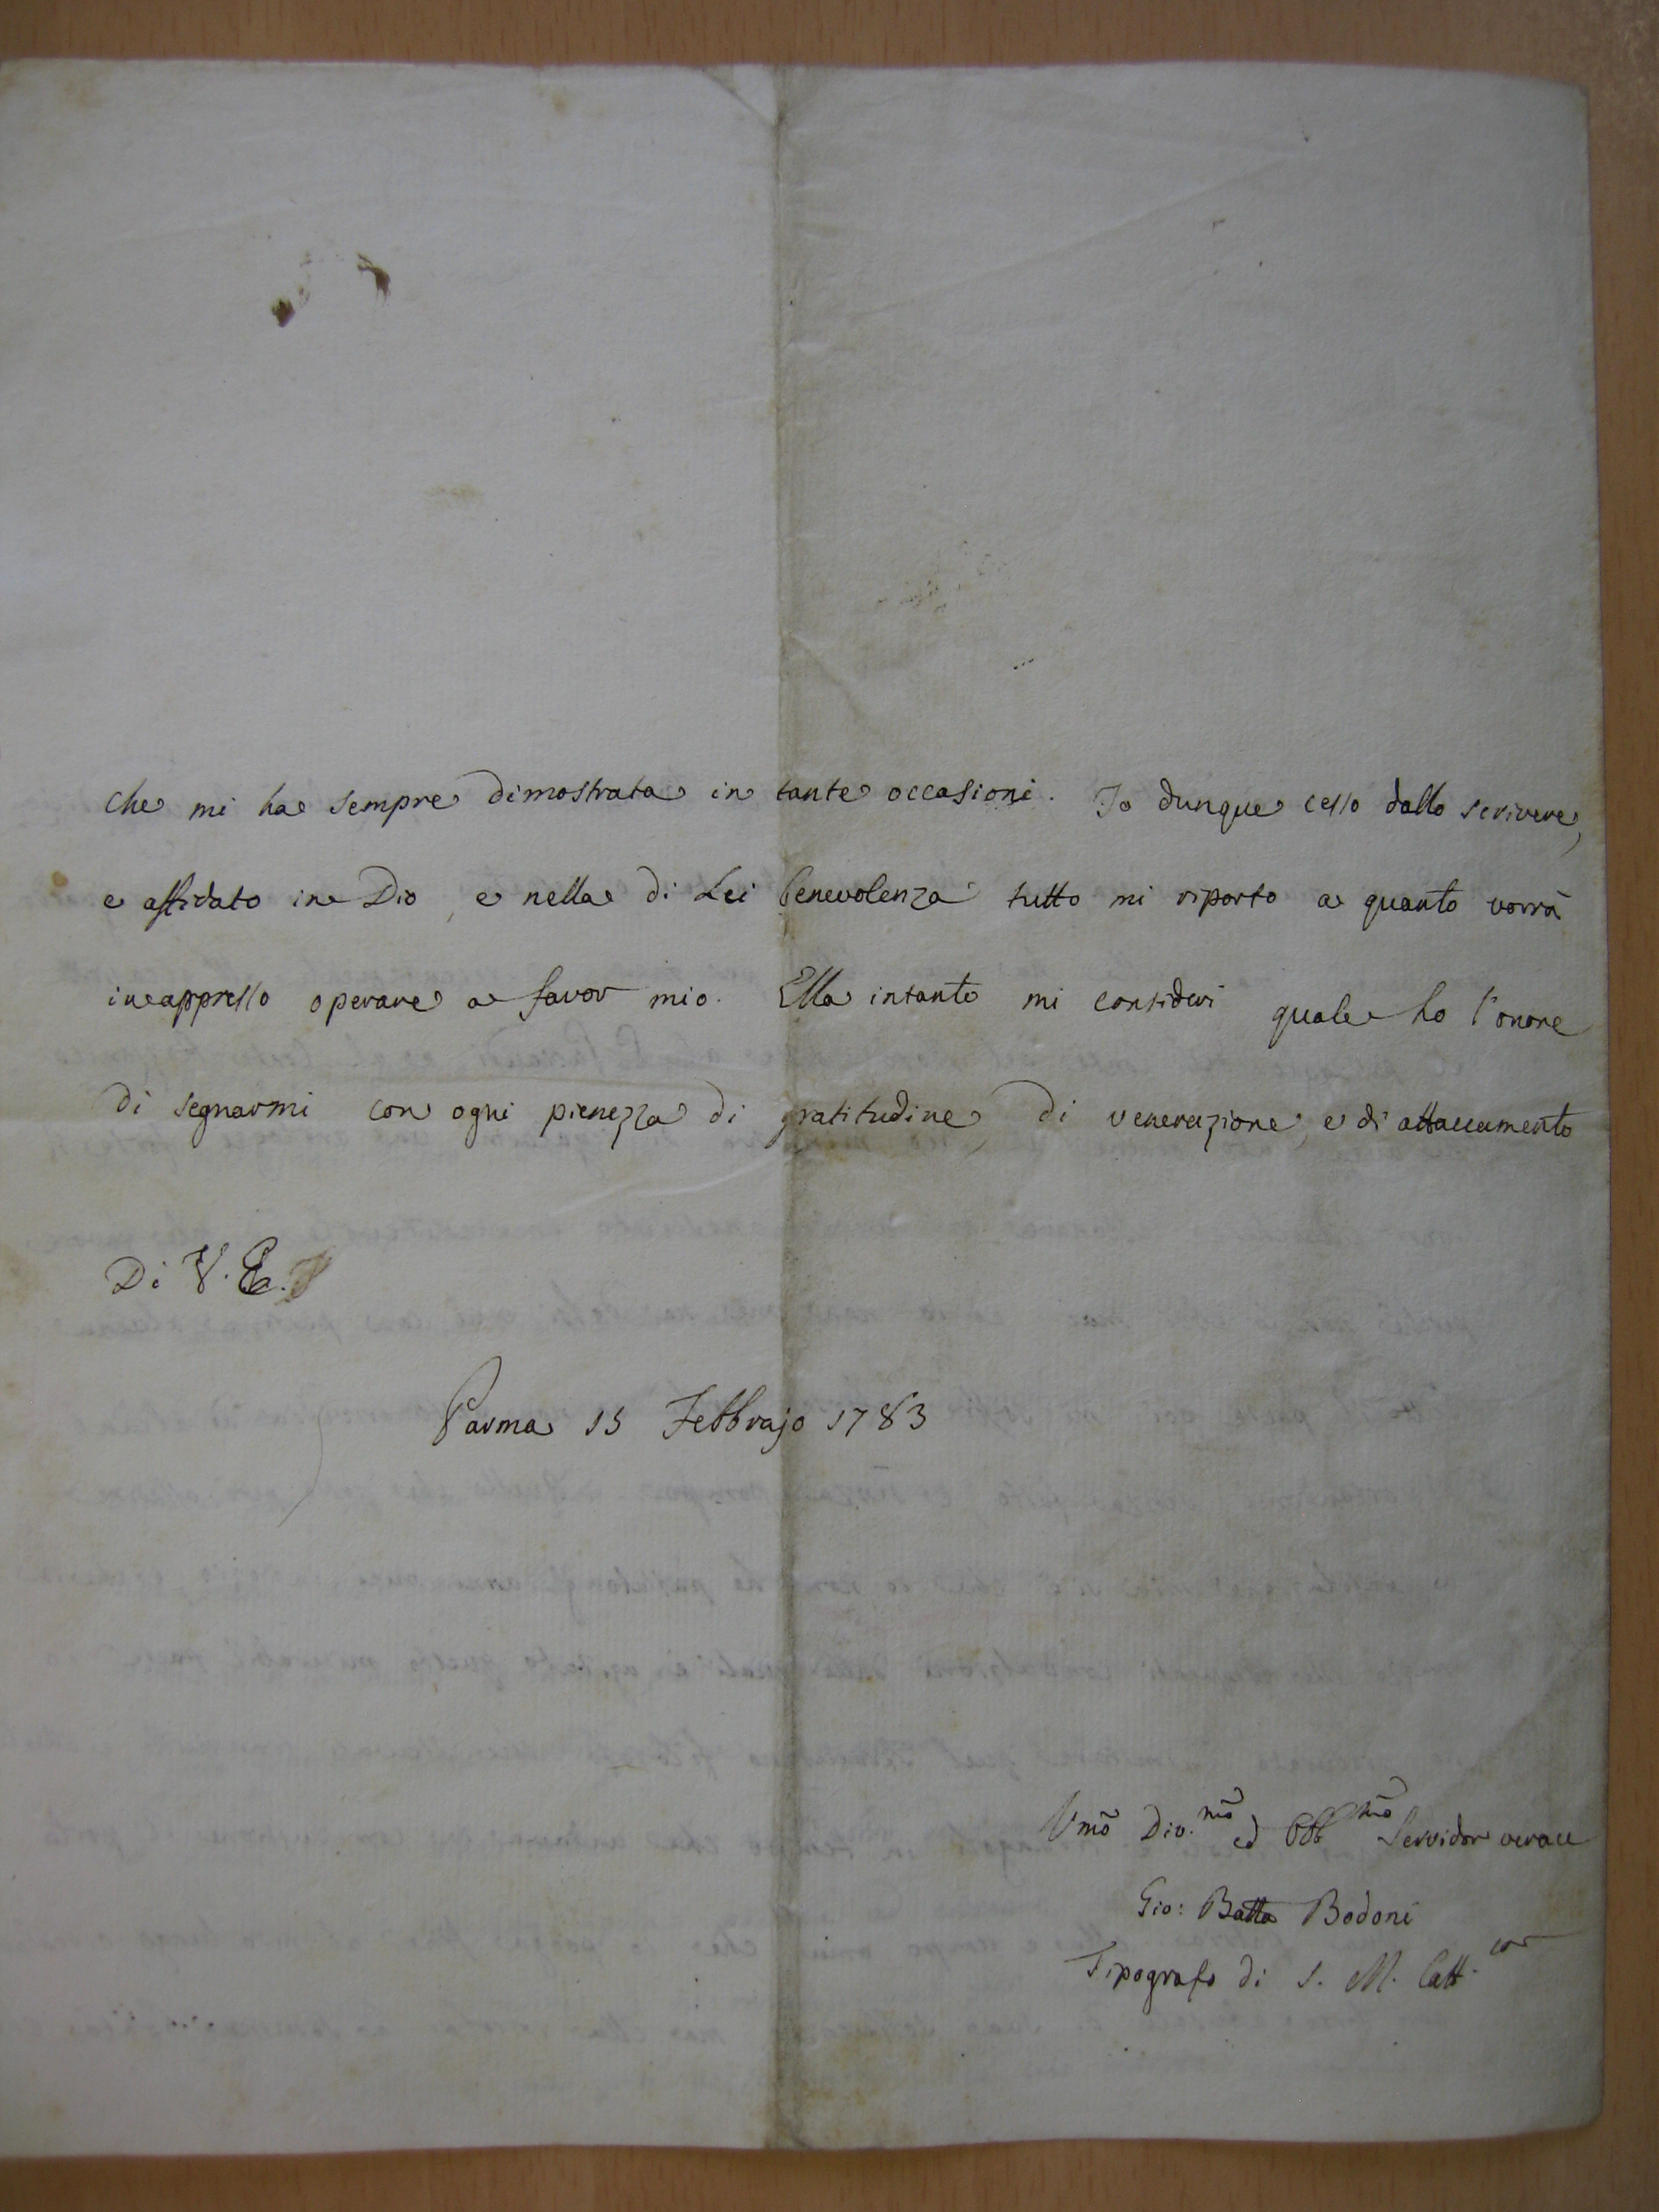 che mi ha sempre dimostrata in tante occasioni. Io dunque cesso dallo scrivere,
e affidato in Dio, e nella di Lei benevolenza tutto mi riporto a quanto vorrà
in appresso operare a favor mio. Ella intanto mi consideri quale ho l'onore
di segnarmi con ogni pienezza di gratitudine, di venerazione, e di attaccamento
Di V. E.
Parma 15 Febbrajo 1783
Umõ Div.mõ ed Obb.mõ Servidor verace
Gio: Batta Bodoni
Tipografo di S. M. Catt.ca